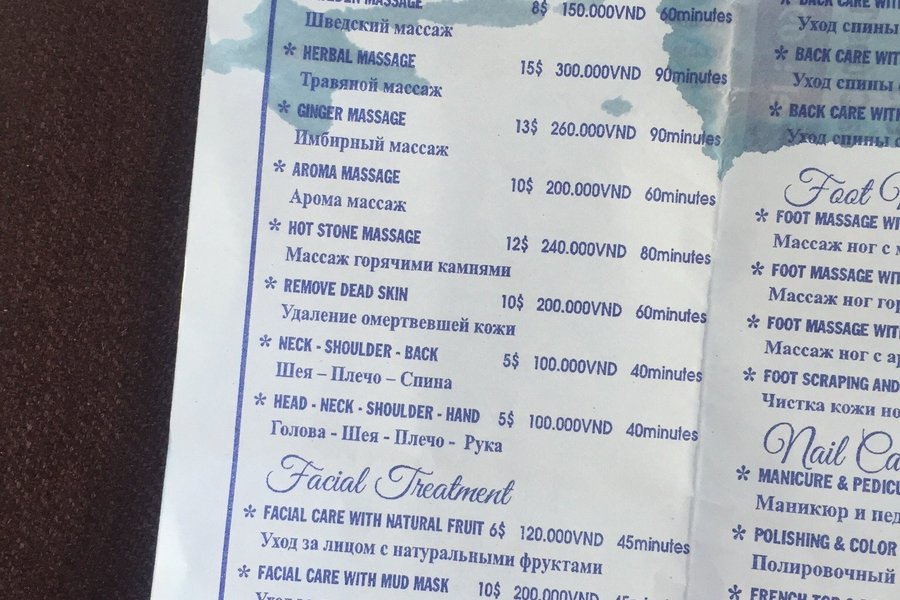 MASSAGE 8$ 150.000VND 60minutes
Шведский массаж
* HERBAL MASSAGE 15$ 300.000VND 90minutes
Травяной массаж
* GINGER MASSAGE 13$ 260.000VND 90minutes
Имбирный массаж
* AROMA MASSAGE 10$ 200.000VND 60minutes
Арома массаж
* HOT STONE MASSAGE 12$ 240.000VND 80minutes
Массаж горячими камнями
* REMOVE DEAD SKIN 10$ 200.000VND 60minutes
Удаление омертвевшей кожи
* NECK - SHOULDER - BACK 5$ 100.000VND 40minutes
Шея – Плечо – Спина
* HEAD - NECK - SHOULDER - HAND 5$ 100.000VND 40minutes
Голова - Шея - Плечо - Рука
Facial Treatment
* FACIAL CARE WITH NATURAL FRUIT 6$ 120.000VND 45minutes
Уход за лицом с натуральными фруктами
* FACIAL CARE WITH MUD MASK 10$ 200.000VND
* BACK CARE
Уход спины
* BACK CARE WIT
Уход спины
* BACK CARE WITH
Уход спины с
Foot
* FOOT MASSAGE WI
Массаж ног с
* FOOT MASSAGE WIT
Массаж ног гор
* FOOT MASSAGE WIT
Массаж ног с ар
* FOOT SCRAPING AND
Чистка кожи но
Nail Ca
* MANICURE & PEDICU
Маникюр и пед
* POLISHING & COLOR
Полировочный
* FRENCH